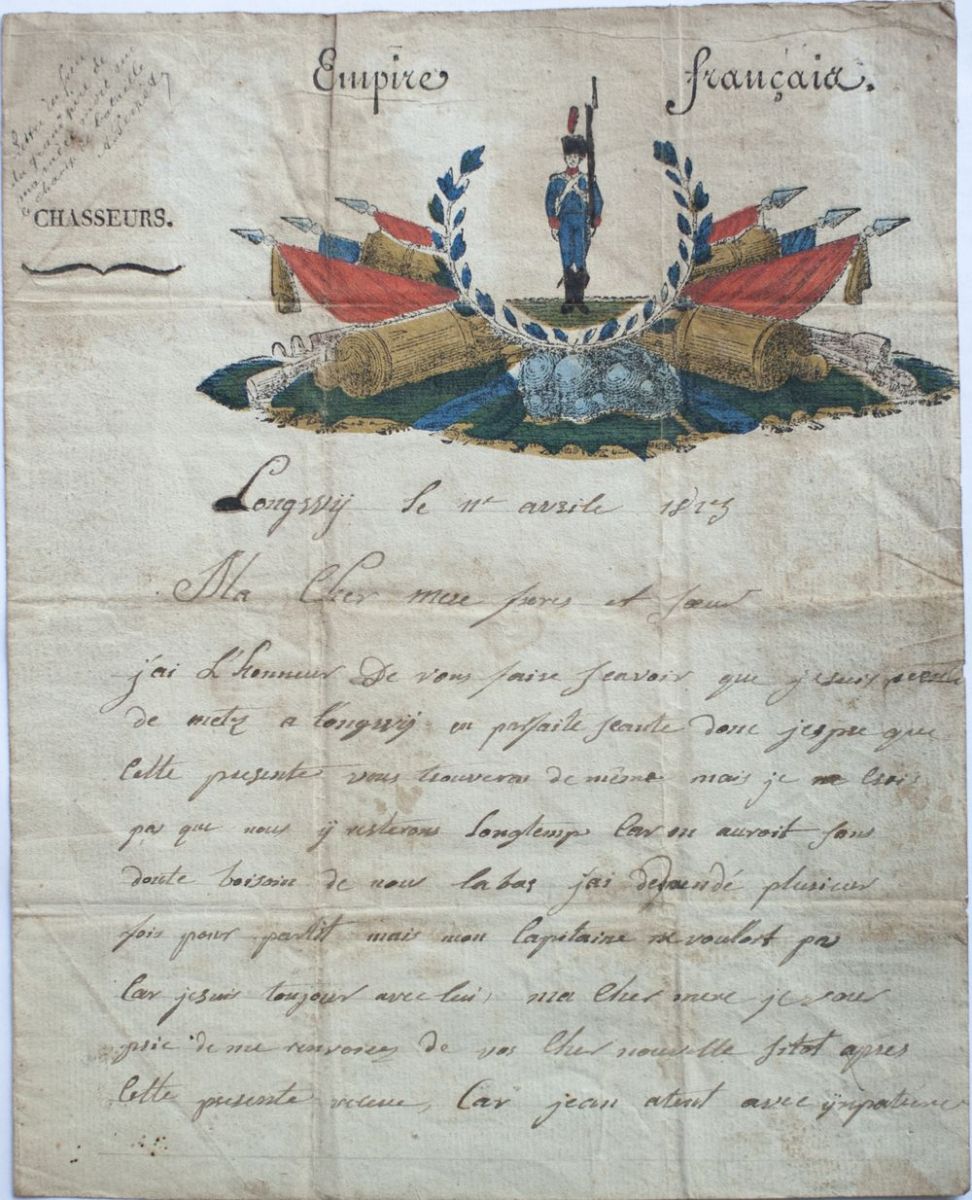 Empire français.
Lettre du frère
du grand père de
ma mère mort sur
le champ de bataille
CHASSEURS.
Longwÿ le 11e avrile 1813
Ma Cher mere freres et sœur
j'ai L'honneur De vous faire scavoir que jesuis
de metz a longwÿ en parfaite seante donc jespre que
Cette presente vous trouveras de même mais je ne crois
pas que nous ÿ resterons longtemp Car on auroit sans
doute boisoin de nous labas j'ai demendé plusieur
fois pour partit mais mon Capitaine ne voulost pas
Car jesuis toujour avec lui, ma Cher mere je vous
prie de me renvoiez de vos Cher nouvelle sitot apres
Cette presente recue, Car jean atent avec ÿnpatience